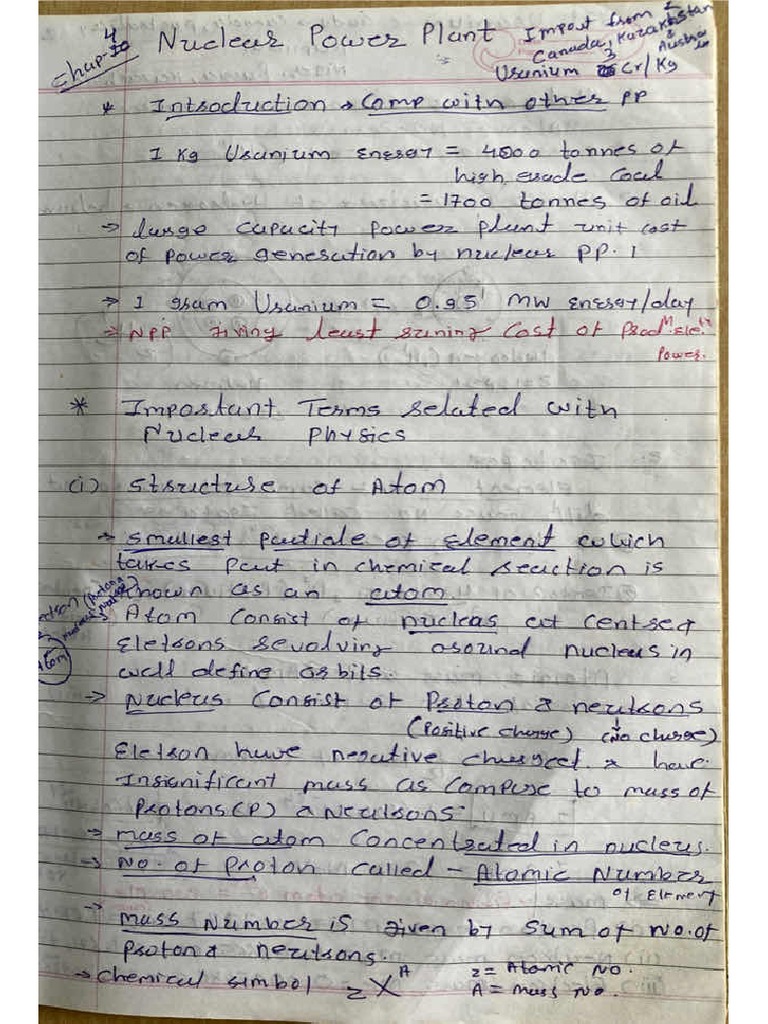 Chap-4
Nuclear Power Plant
Import from
Canada, Kazakhstan
&
Uranium 3 Cr/Kg
* Introduction → Comp with other PP
1 Kg Uranium energy = 4500 tonnes of
high grade Coal
= 1700 tonnes of oil
→ large capacity power plant unit cost
of power generation by nuclear PP. 1
→ 1 gram Uranium = 0.95 MW energy/day
→ NPP giving least running cost of Prodn. ele.
Power.
* Important Terms related with
Nuclear Physics
(i) Structure of Atom
→ smallest particle of element which
takes part in chemical reaction is
known as an atom
Atom consist of nucleas at centre &
Eletrons revolving around nucleus in
well define orbits.
→ Nucleus Consist of Proton & neutrons
(Positive charge) (No charge)
Eletron have negative charged & have
Insignificant mass as compare to mass of
Protons(P) & Neutrons.
→ mass of atom Concentrated in nucleus.
→ No. of Proton called - Atomic Number
of Element
→ mass Number is given by sum of No. of
Proton & neutrons.
→ Chemical symbol zX^A z = Atomic No.
A = Mass No.